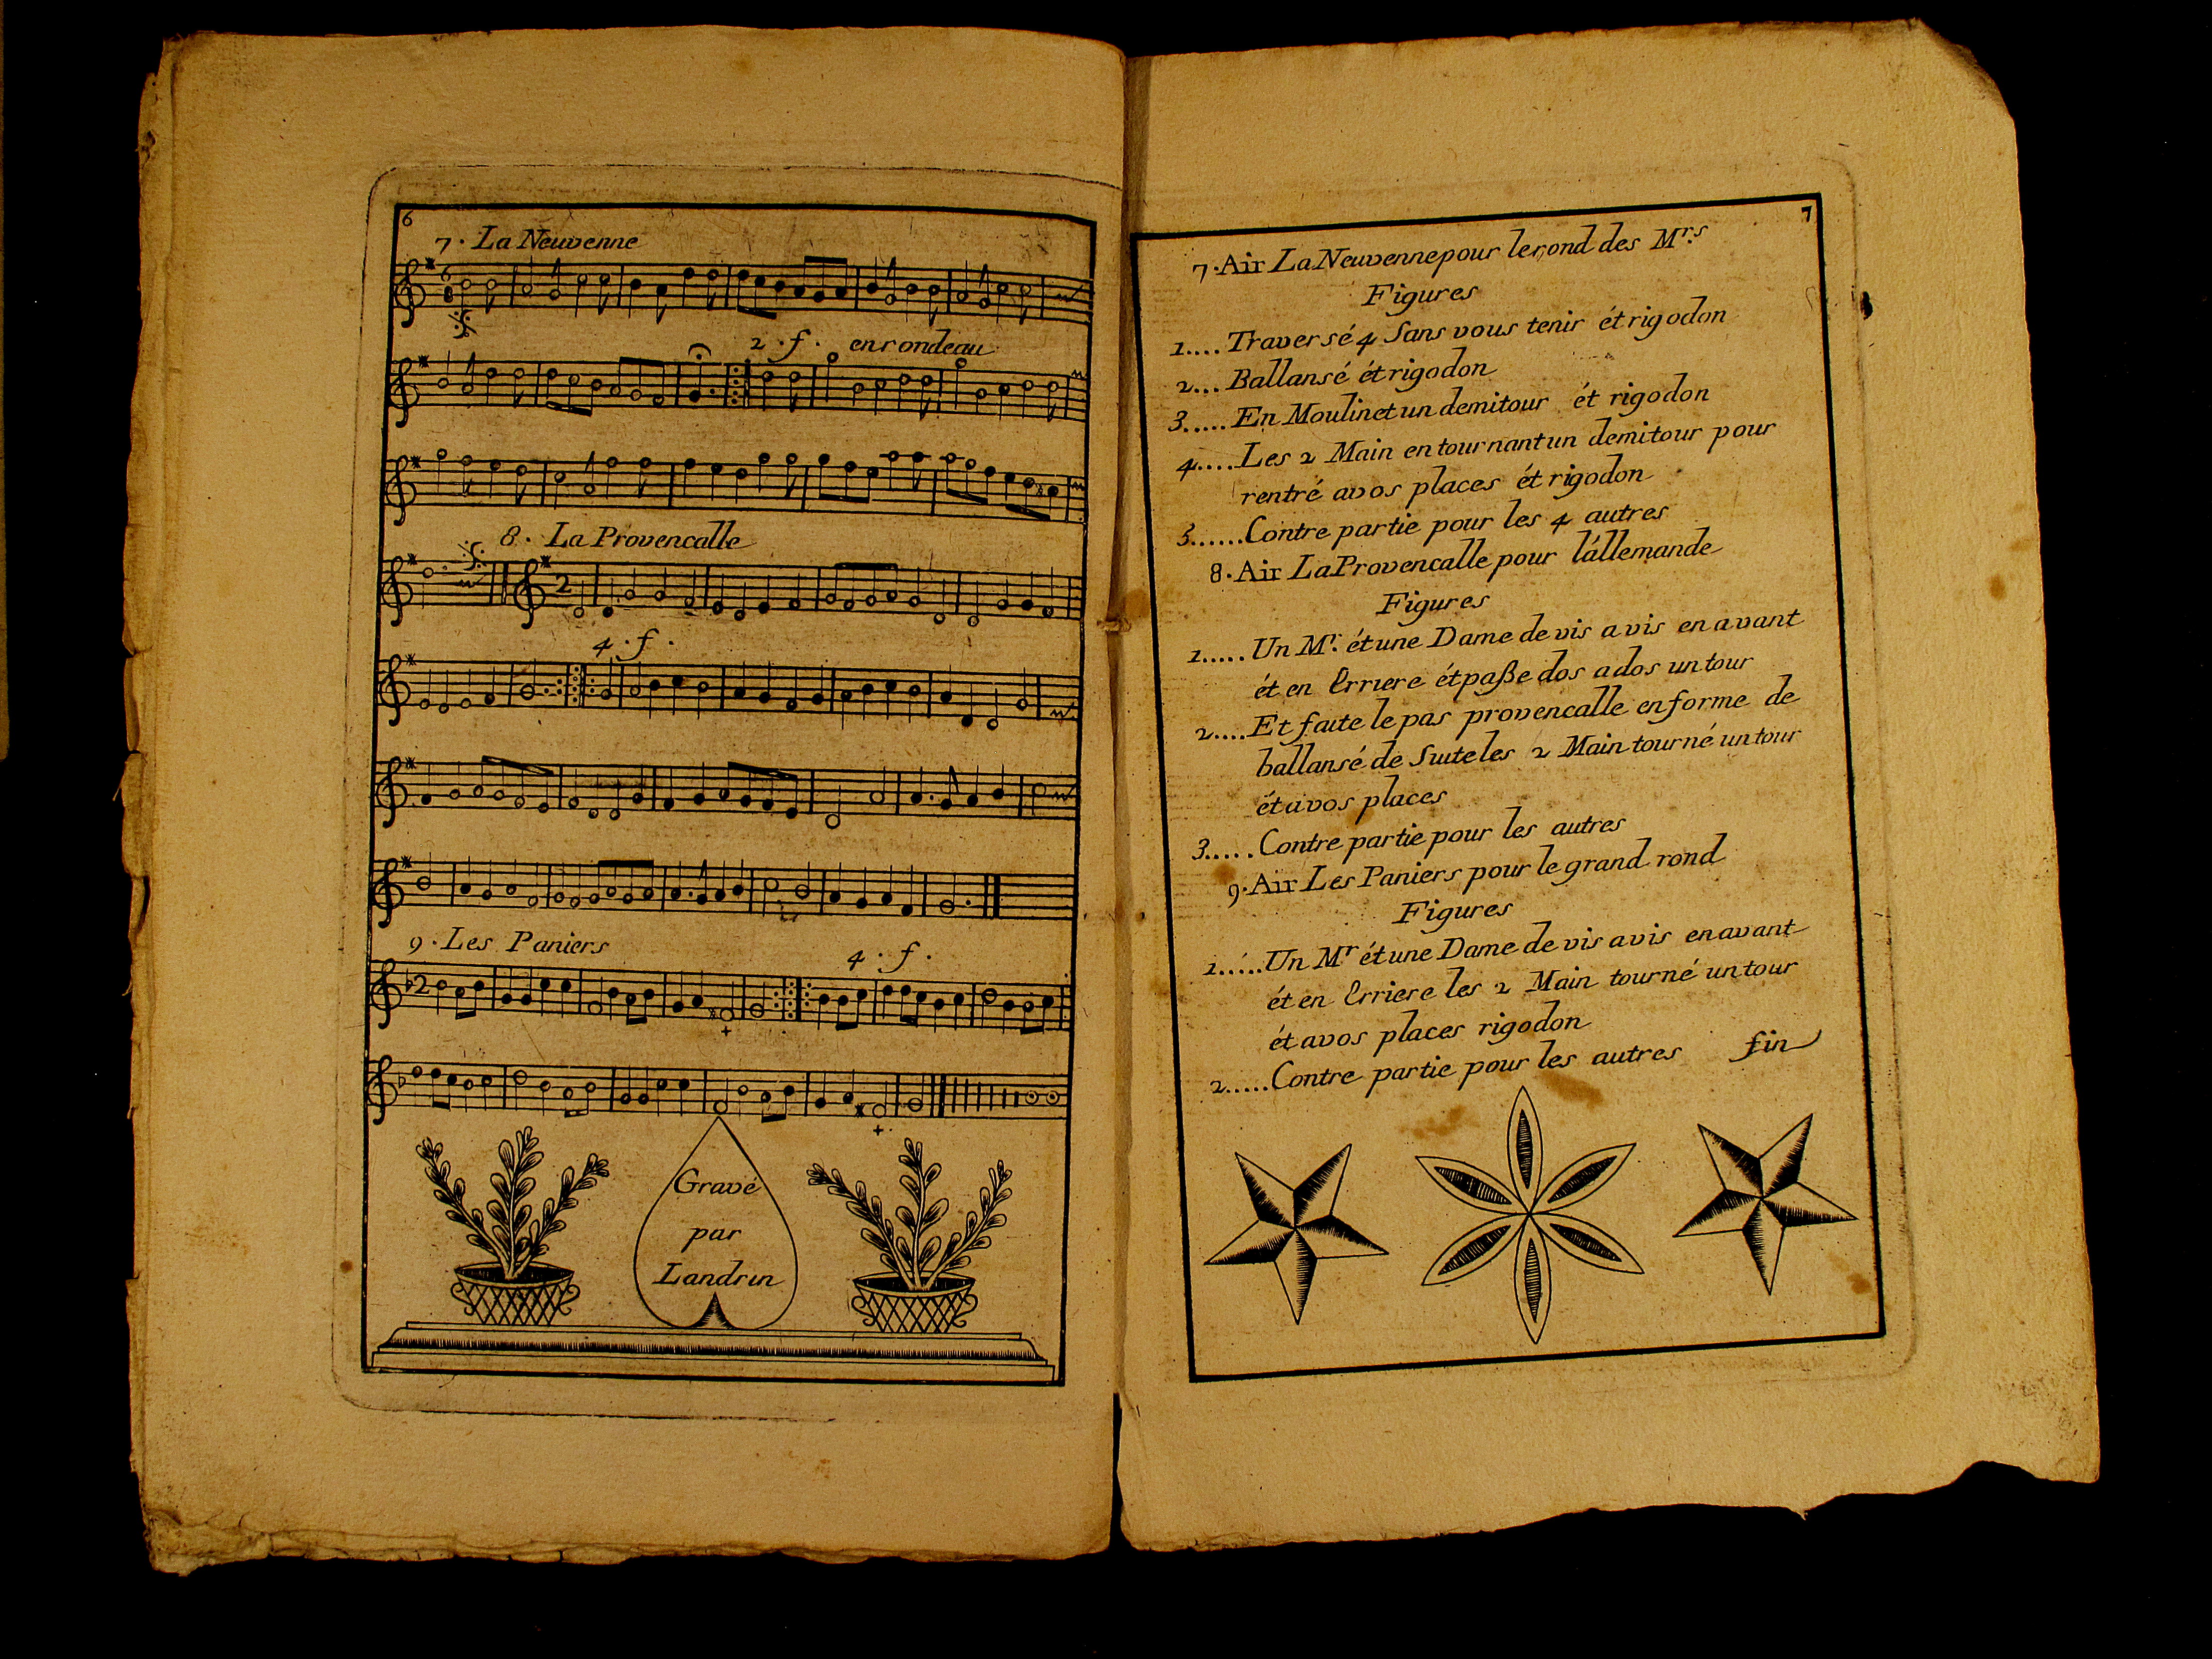 6
7. La Neuvenne
2. f. en rondeau
8. La Provencalle
4. f.
9. Les Paniers
4. f.
Gravé
par
Landrin
7
7. Air La Neuvenne pour le rond des Mrs
Figures
1.... Traversé 4 Sans vous tenir ét rigodon
2... Ballansé ét rigodon
3..... En Moulinet un demitour ét rigodon
4.... Les 2 Main en tournant un demitour pour
rentré avos places ét rigodon
5...... Contre partie pour les 4 autres
8. Air La Provencalle pour l'állemande
Figures
1..... Un Mr. ét une Dame de vis a vis en avant
ét en Erriere ét paße dos a dos un tour
2.... Et faite le pas provencalle en forme de
ballansé de Suite les 2 Main tourné un tour
ét avos places
3..... Contre partie pour les autres
9. Air Les Paniers pour le grand rond
Figures
1..... Un Mr ét une Dame de vis avis en avant
ét en Erriere les 2 Main tourné un tour
ét avos places rigodon
2..... Contre partie pour les autres fin